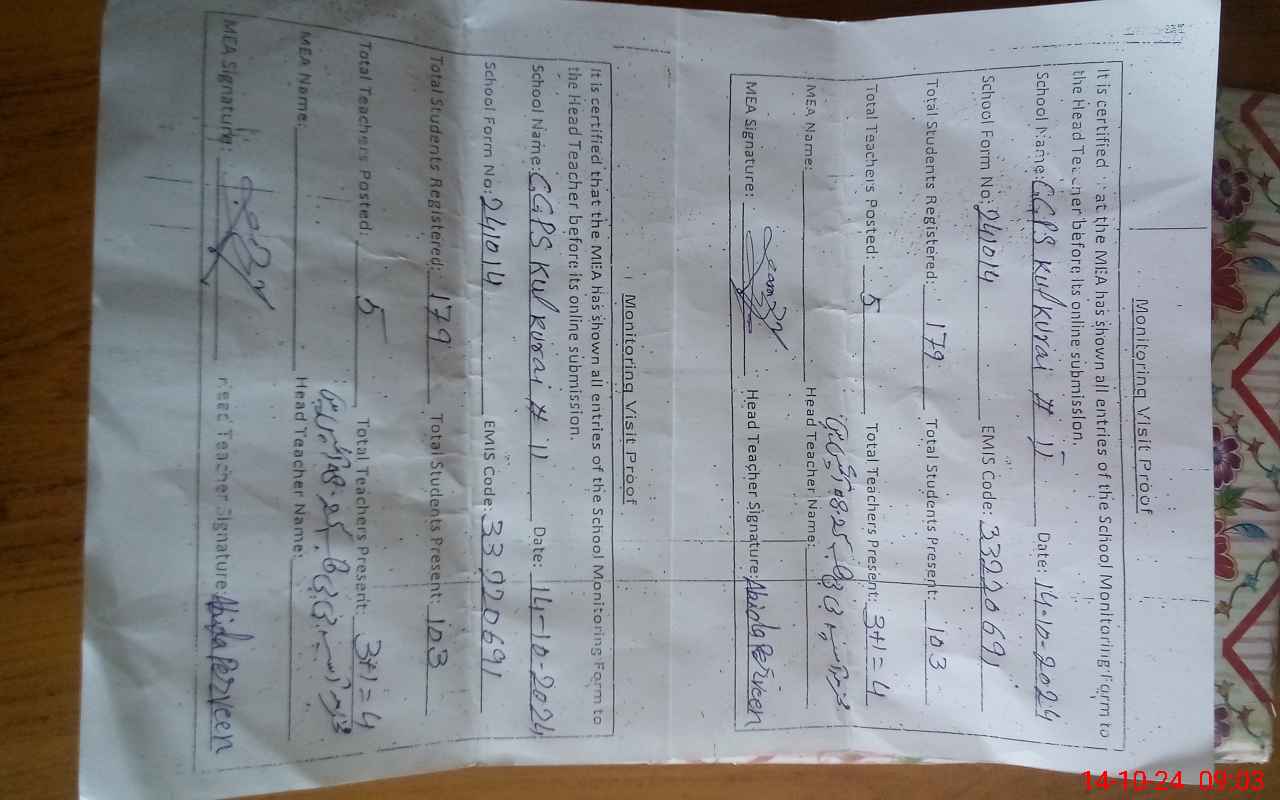 Monitoring Visit Proof
It is certified that the MEA has shown all entries of the School Monitoring Form to
the Head Teacher before its online submission.
School Name: GGPS Kul Kurai # 11 Date: 14-10-2024
School Form No: 241014 EMIS Code: 33220691
Total Students Registered: 179 Total Students Present: 103
Total Teachers Posted: 5 Total Teachers Present: 3+1=4
MEA Name: Head Teacher Name:
MEA Signature: Head Teacher Signature: Abida Perveen
Monitoring Visit Proof
It is certified that the MEA has shown all entries of the School Monitoring Form to
the Head Teacher before its online submission.
School Name: GGPS Kul Kurai # 11 Date: 14-10-2024
School Form No: 241014 EMIS Code: 33220691
Total Students Registered: 179 Total Students Present: 103
Total Teachers Posted: 5 Total Teachers Present: 3+1=4
MEA Name: Head Teacher Name:
MEA Signature: Head Teacher Signature: Abida Perveen
14-10-24 09:03